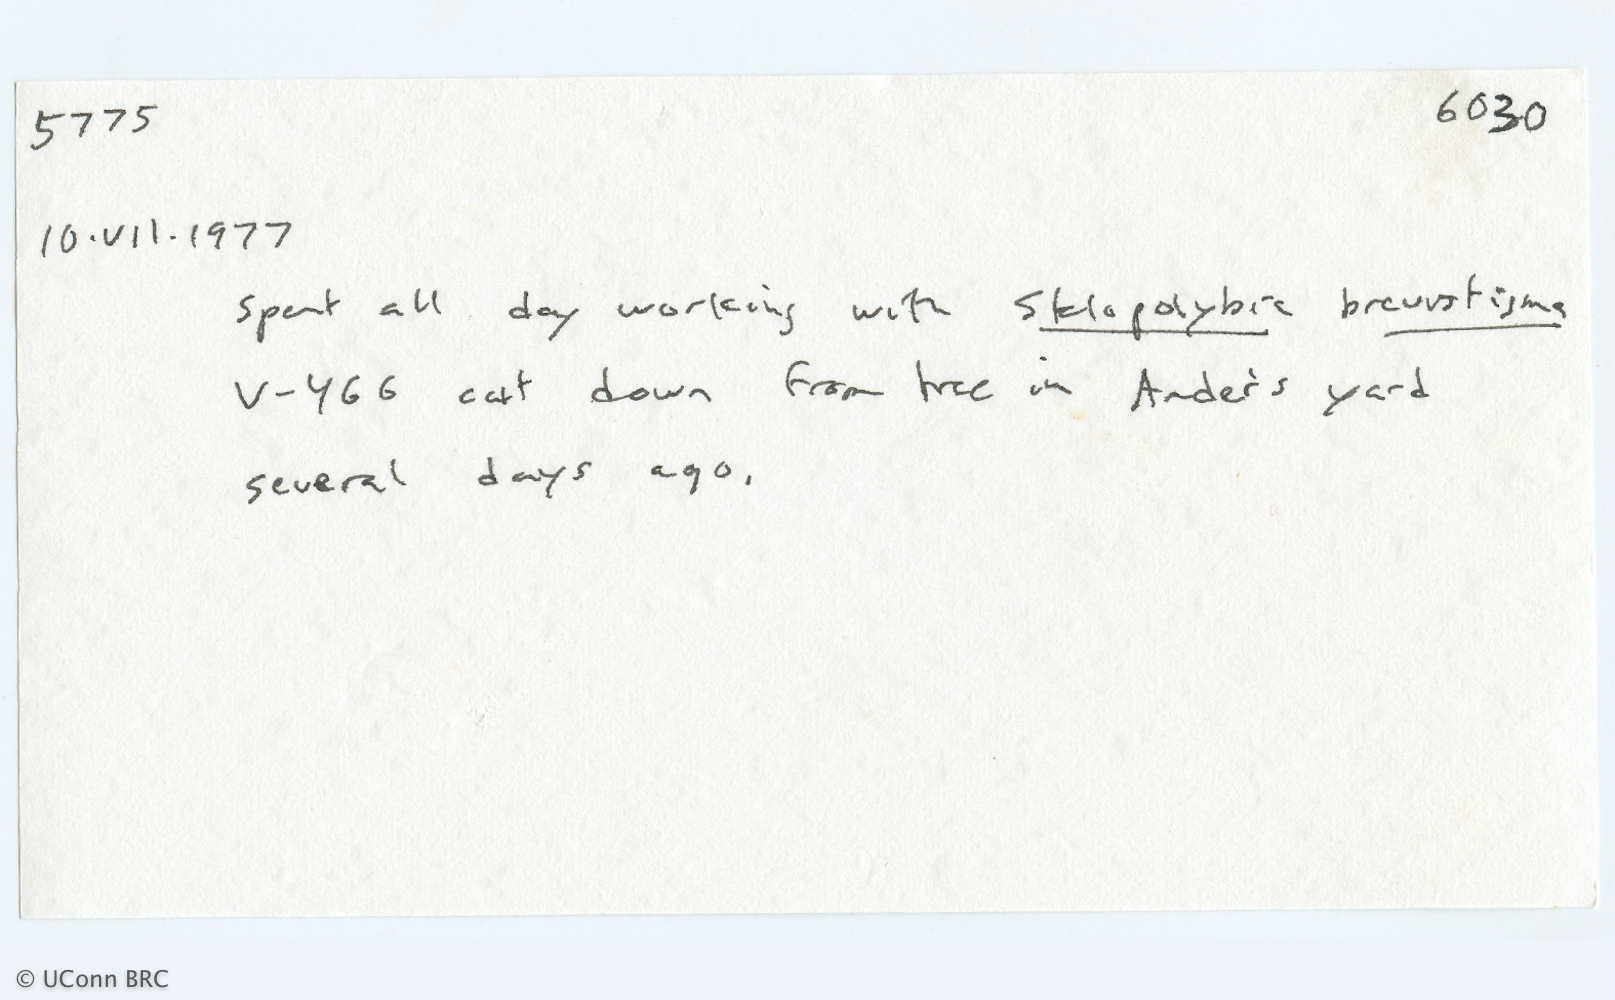 5775 6030
10.VII.1977
spent all day working with Stelopolybia brevistigma
V-466 cut down from tree in Ander's yard
several days ago.
© UConn BRC